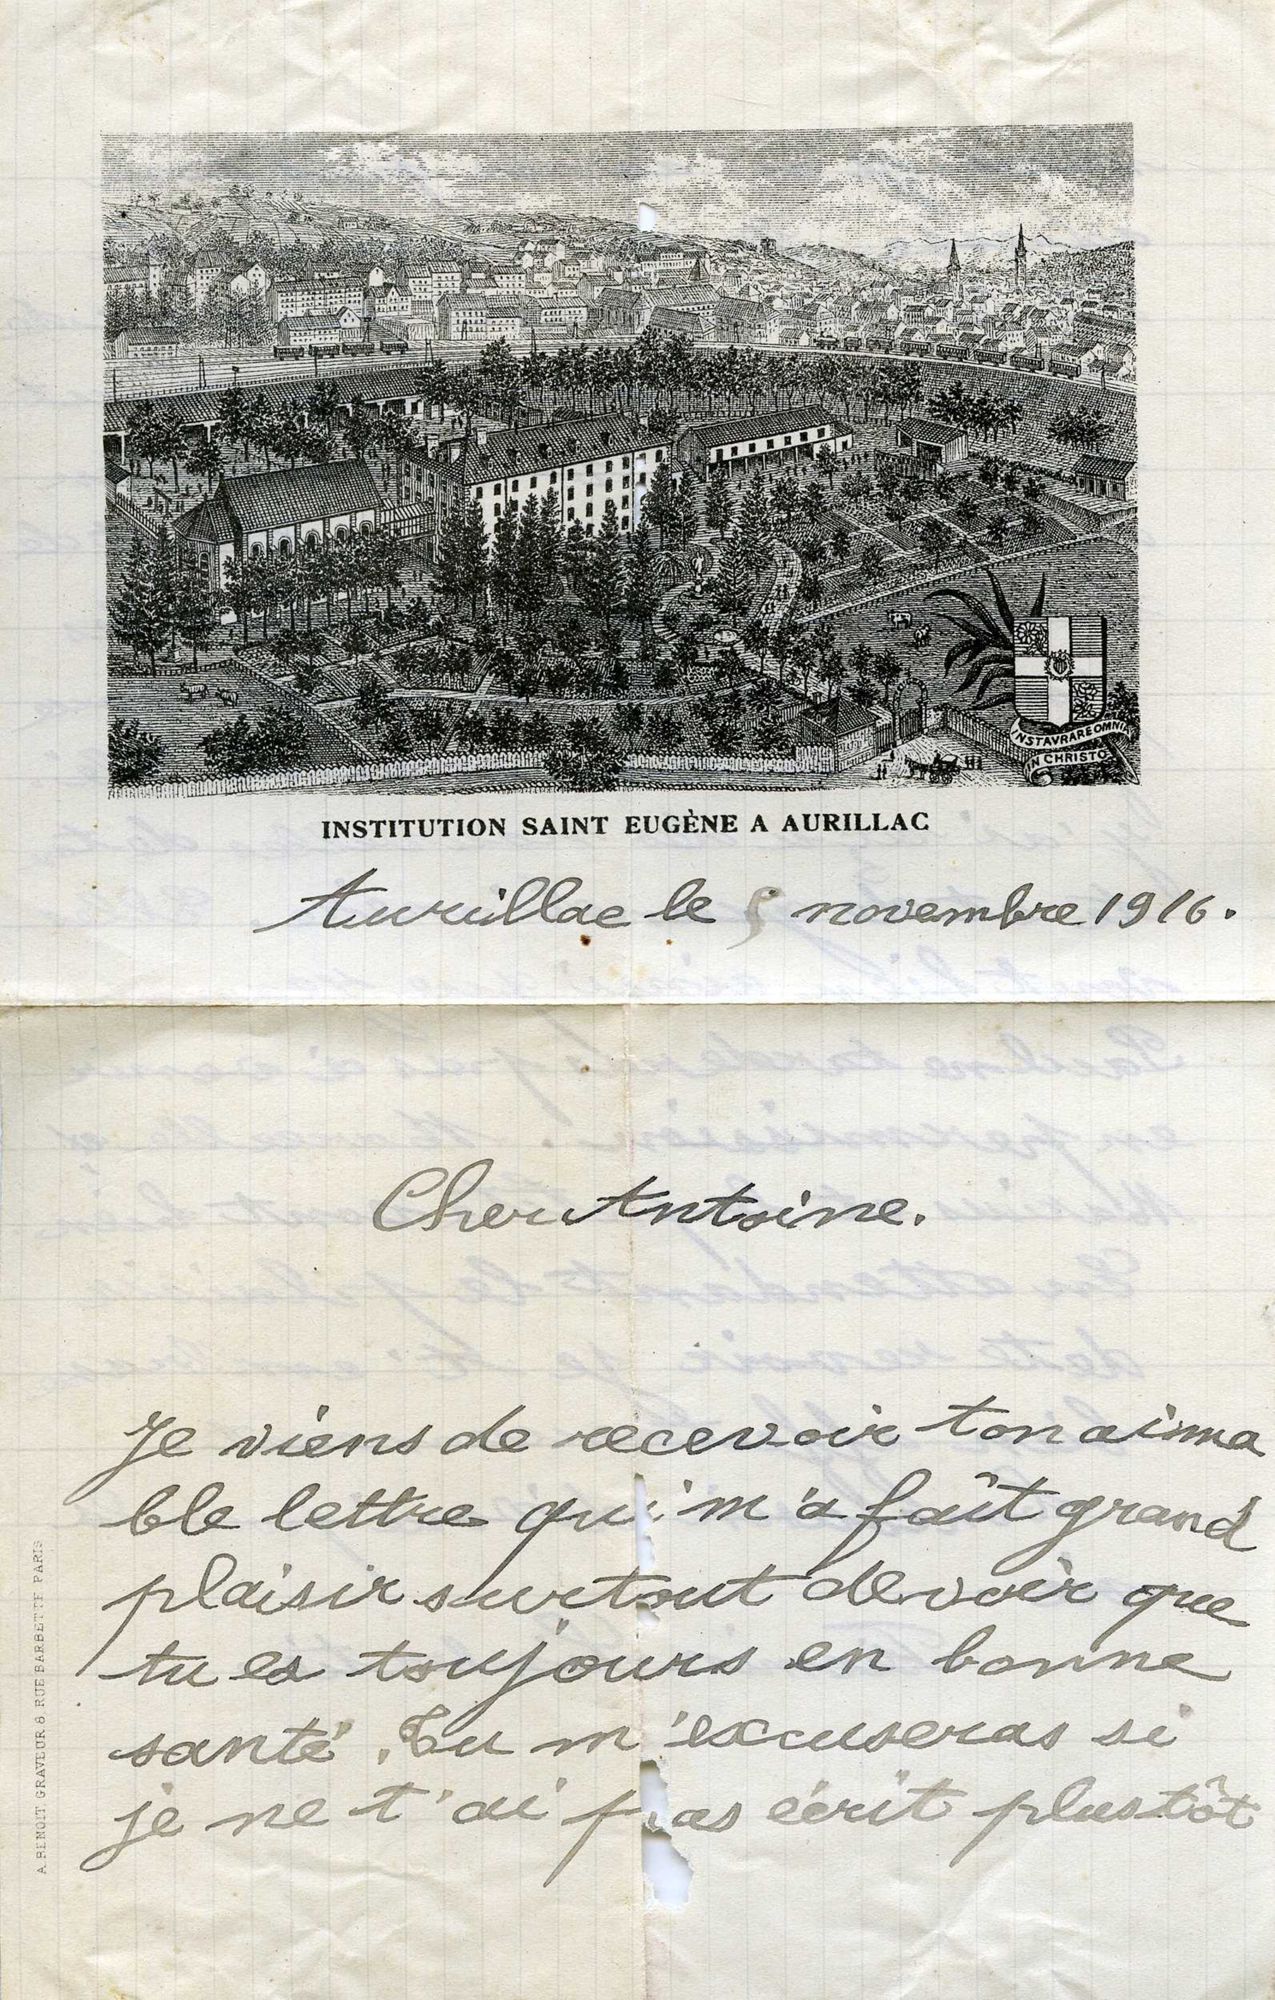 INSTAVRARE OMNIA
IN CHRISTO
INSTITUTION SAINT EUGÈNE A AURILLAC
Aurillac le 5 novembre 1916.
Cher Antoine.
Je viens de recevoir ton aima
ble lettre qui m'a faît grand
plaisir surtout de voir que
tu es toujours en bonne
santé. Tu m'excuseras si
je ne t'ai pas écrit plustôt
A. BENOIT GRAVEUR 8 RUE BARBETTE PARIS